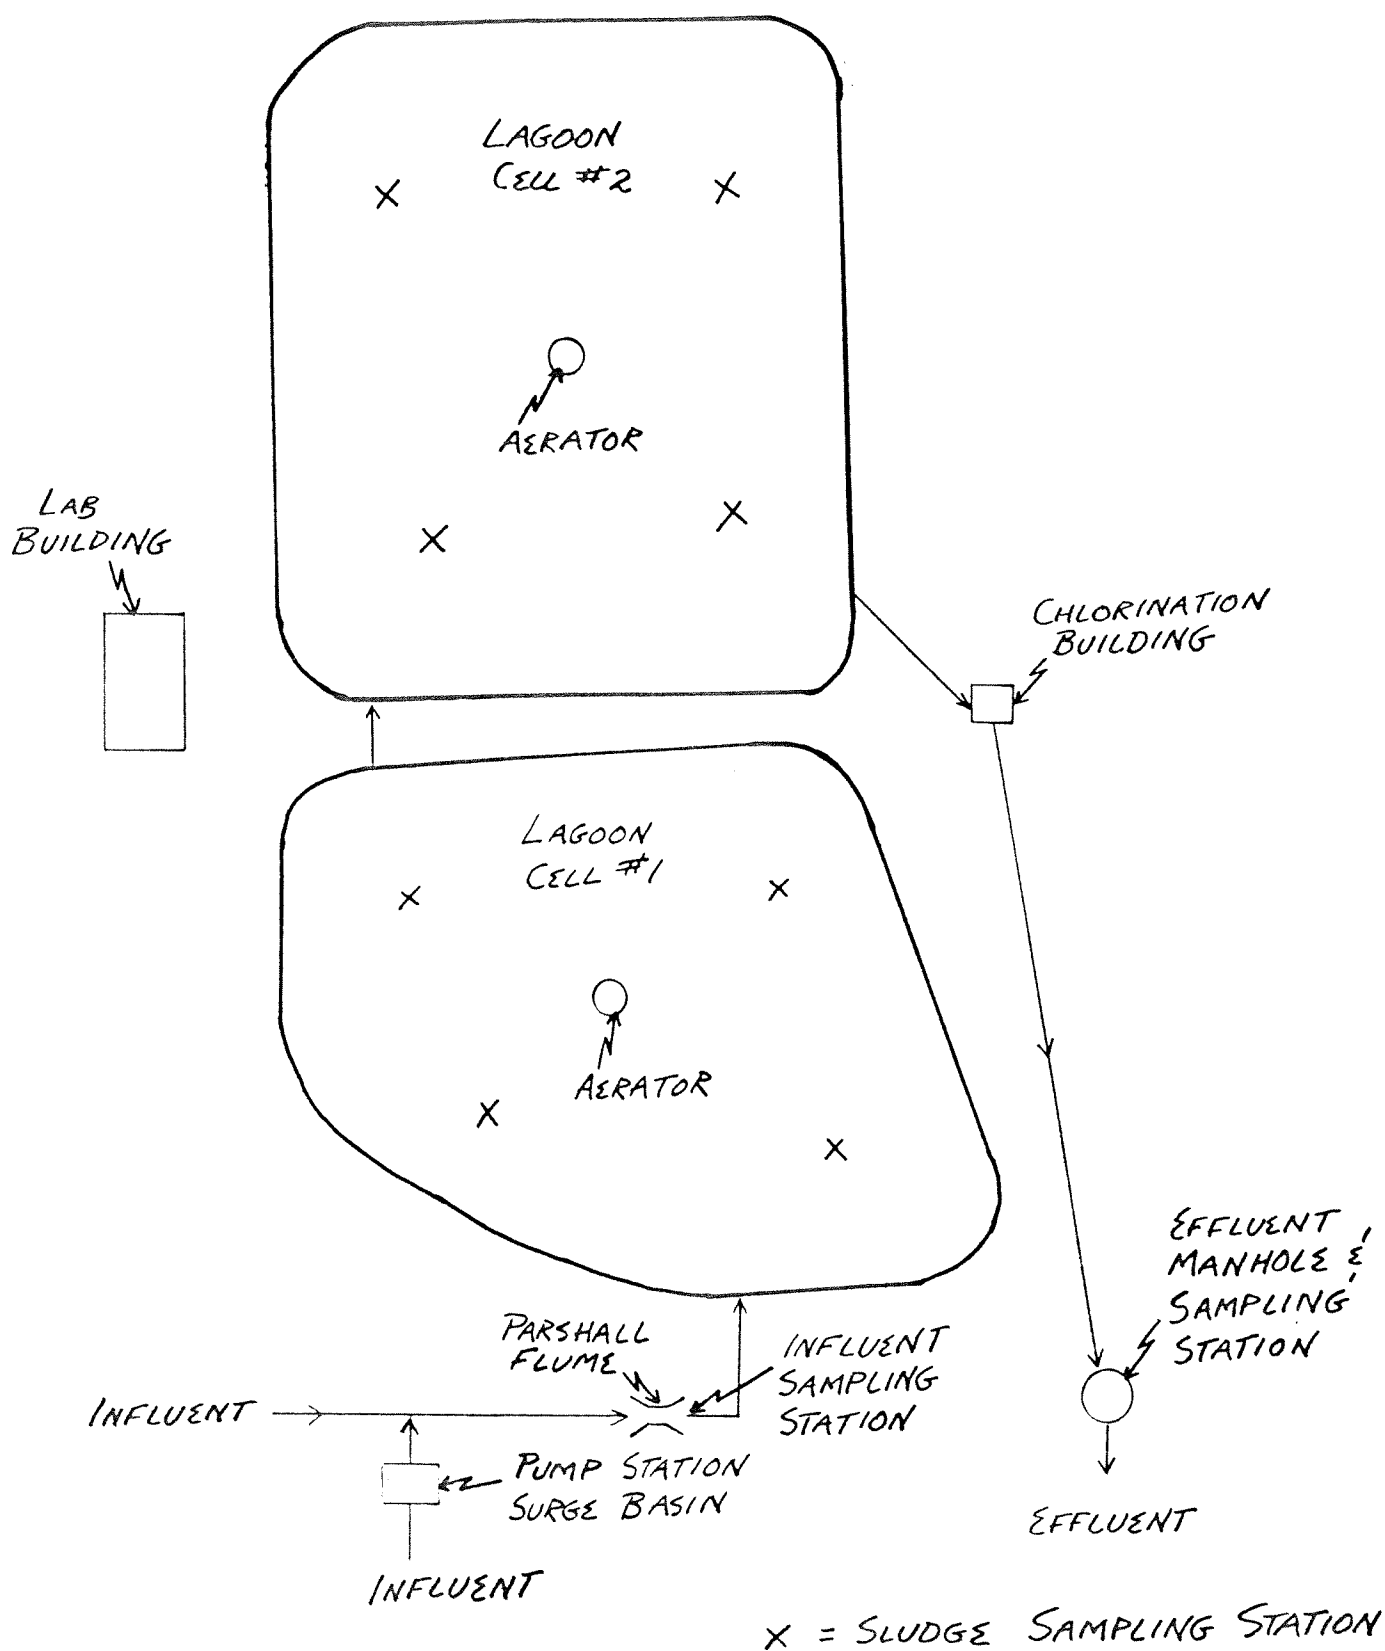 LAGOON
CELL #2
AERATOR
LAB
BUILDING
CHLORINATION
BUILDING
LAGOON
CELL #1
AERATOR
EFFLUENT
MANHOLE &
SAMPLING
STATION
PARSHALL
FLUME
INFLUENT
SAMPLING
STATION
INFLUENT
PUMP STATION
SURGE BASIN
EFFLUENT
INFLUENT
X = SLUDGE SAMPLING STATION